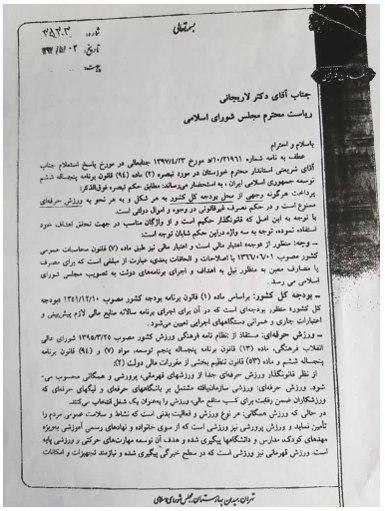 بسمه تعالی
شماره: ۳۵۲۰۳
تاریخ: ۱۳۹۷/۵/۰۲
پیوست:
جناب آقای دکتر لاریجانی
ریاست محترم مجلس شورای اسلامی
باسلام و احترام
عطف به نامه شماره ۱۰/۳۱۹۶۱/د مورخ ۱۳۹۷/۴/۲۳ جنابعالی در مورخ پاسخ استعلام جناب
آقای شریعتی استاندار محترم خوزستان در مورد تبصره (۲) ماده (۹۴) قانون برنامه پنجساله ششم
توسعه جمهوری اسلامی ایران، به استحضار می‌رساند: مطابق حکم تبصره فوق‌الذکر:
پرداخت هرگونه وجهی از محل بودجه کل کشور به هر شکل و به هر نحو به ورزش حرفه‌ای
ممنوع است و در حکم تصرف غیرقانونی در وجوه و اموال دولتی است.
با توجه به این اصل که قانونگذار حکیم است و از واژگان مناسب در جهت تحقق اهداف خود
استفاده نموده، توجه به سه واژه در این حکم شایان توجه است:
- وجه: منظور از وجه، اعتبار مالی است و اعتبار مالی نیز طبق ماده (۷) قانون محاسبات عمومی
کشور مصوب ۱۳۶۶/۰۶/۰۱ با اصلاحات و الحاقات بعدی، عبارت از مبلغی است که برای مصرف
یا مصارف معین به منظور نیل به اهداف و اجرای برنامه‌های دولت به تصویب مجلس شورای
اسلامی می رسد.
- بودجه کل کشور: براساس ماده (۱) قانون برنامه بودجه کشور مصوب ۱۳۵۱/۱۲/۱۰ «بودجه
کل کشور» منظور بودجه‌ای است که در آن برای اجرای برنامه سالانه منابع مالی لازم پیش‌بینی و
اعتبارات جاری و عمرانی دستگاههای اجرایی تعیین می‌شود.
- ورزش حرفه‌ای: مستفاد از نظام نامه فرهنگی ورزش کشور مصوب ۱۳۹۵/۳/۲۵ شورای عالی
انقلاب فرهنگی، ماده (۱۳) قانون برنامه پنجساله پنجم توسعه، مواد (۷) و (۹۴) قانون برنامه
پنجساله ششم و ماده (۵۳) قانون تنظیم بخشی از مقررات مالی دولت (۲):
از نظر قانونگذار ورزش حرفه‌ای جدا از ورزشهای قهرمانی، پرورشی و همگانی محسوب می-
شود. ورزش حرفه‌ای: ورزشی سازمان‌یافته مشتمل بر باشگاههای حرفه‌ای و لیگهای حرفه‌ای که
ورزشکاران ضمن رقابت برای کسب منافع مالی، ورزش را به‌عنوان یک شغل انتخاب می‌کنند.
در حالی که ورزش همگانی: هر نوع ورزش و فعالیت بدنی است که نشاط و سلامت عمومی مردم را
تأمین نماید و ورزش پرورشی نیز ورزشی است که از سوی خانواده و نهادهای رسمی آموزشی به‌ویژه
مهدهای کودک، مدارس و دانشگاهها پیگیری شده و هدف آن توسعه مهارت‌های حرکتی و ورزشی پایه
است. ورزش قهرمانی نیز ورزشی است که در سطح خبرگی پیگیری شده و نیازمند تجهیزات و امکانات
تهران، میدان بهارستان، مجلس شورای اسلامی